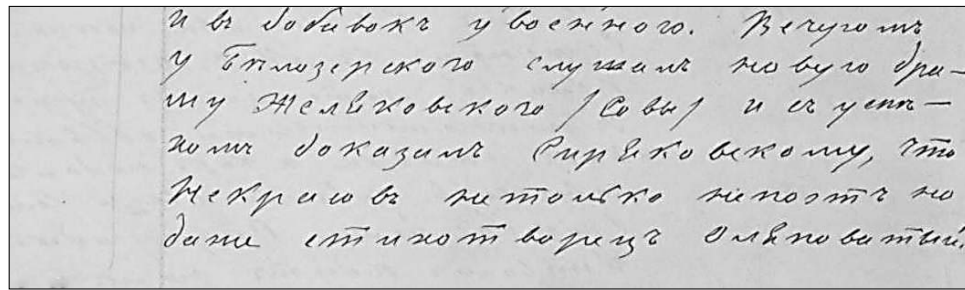 и въ добавокъ у военного. Вечеромъ
у Билозерского слушалъ новую дра—
му Желяковского /Совы/ и съ успе—
хомъ доказалъ Сиряковскому, что
Некрасовъ нетолько непоэтъ но
даже стихотворецъ Оляповатый.